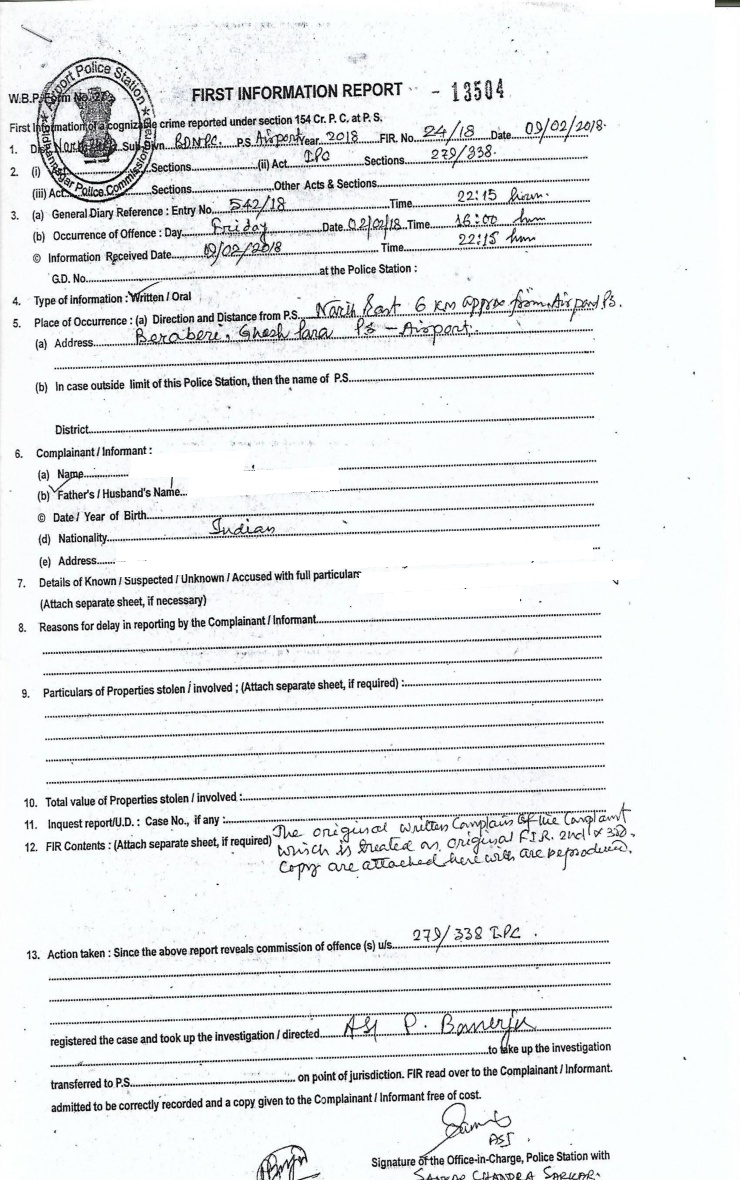 W.B.P. Form No. 27
FIRST INFORMATION REPORT - 13504
Airport Police Station
First Information of a cognizable crime reported under section 154 Cr. P. C. at P. S.
1. Sub-Divn. BDNPC. P.S. Airport Year 2018 FIR. No. 24/18 Date 09/02/2018.
2. (i) Sections (ii) Act IPC Sections 279/338.
(iii) Act Sections Other Acts & Sections
3. (a) General Diary Reference : Entry No. 542/18 Time 22:15 hrs.
(b) Occurrence of Offence : Day Friday Date 02/02/18. Time 16:00 hrs
© Information Received Date 09/02/2018 Time 22:15 hrs
G.D. No. at the Police Station :
4. Type of information : Written / Oral
5. Place of Occurrence : (a) Direction and Distance from P.S. North East 6 KM approx from Airport PS.
(a) Address Beraberi, Ghosh Para PS - Airport.
(b) In case outside limit of this Police Station, then the name of P.S.
District
6. Complainant / Informant :
(a) Name
(b) Father's / Husband's Name
© Date / Year of Birth
(d) Nationality Indian
(e) Address
7. Details of Known / Suspected / Unknown / Accused with full particulars
(Attach separate sheet, if necessary)
8. Reasons for delay in reporting by the Complainant / Informant
9. Particulars of Properties stolen / involved ; (Attach separate sheet, if required) :
10. Total value of Properties stolen / involved :
11. Inquest report/U.D. : Case No., if any :
12. FIR Contents : (Attach separate sheet, if required) The original written Complain of the Complaint
which is treated as original F.I.R. 2nd & 3rd.
Copy are attached here with are reproduced.
13. Action taken : Since the above report reveals commission of offence (s) u/s. 279/338 IPC.
registered the case and took up the investigation / directed ASI P. Banerjee
to take up the investigation
transferred to P.S. on point of jurisdiction. FIR read over to the Complainant / Informant.
admitted to be correctly recorded and a copy given to the Complainant / Informant free of cost.
ASI
Signature of the Office-in-Charge, Police Station with
CHANDRA SARKAR.